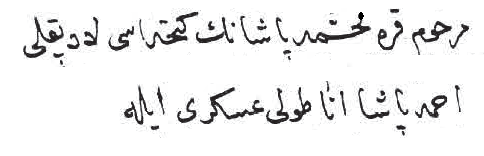 مرحوم قره محمد پاشانك كتخداسی لادیقلی
احمد پاشا اناطولی عسكری ایله